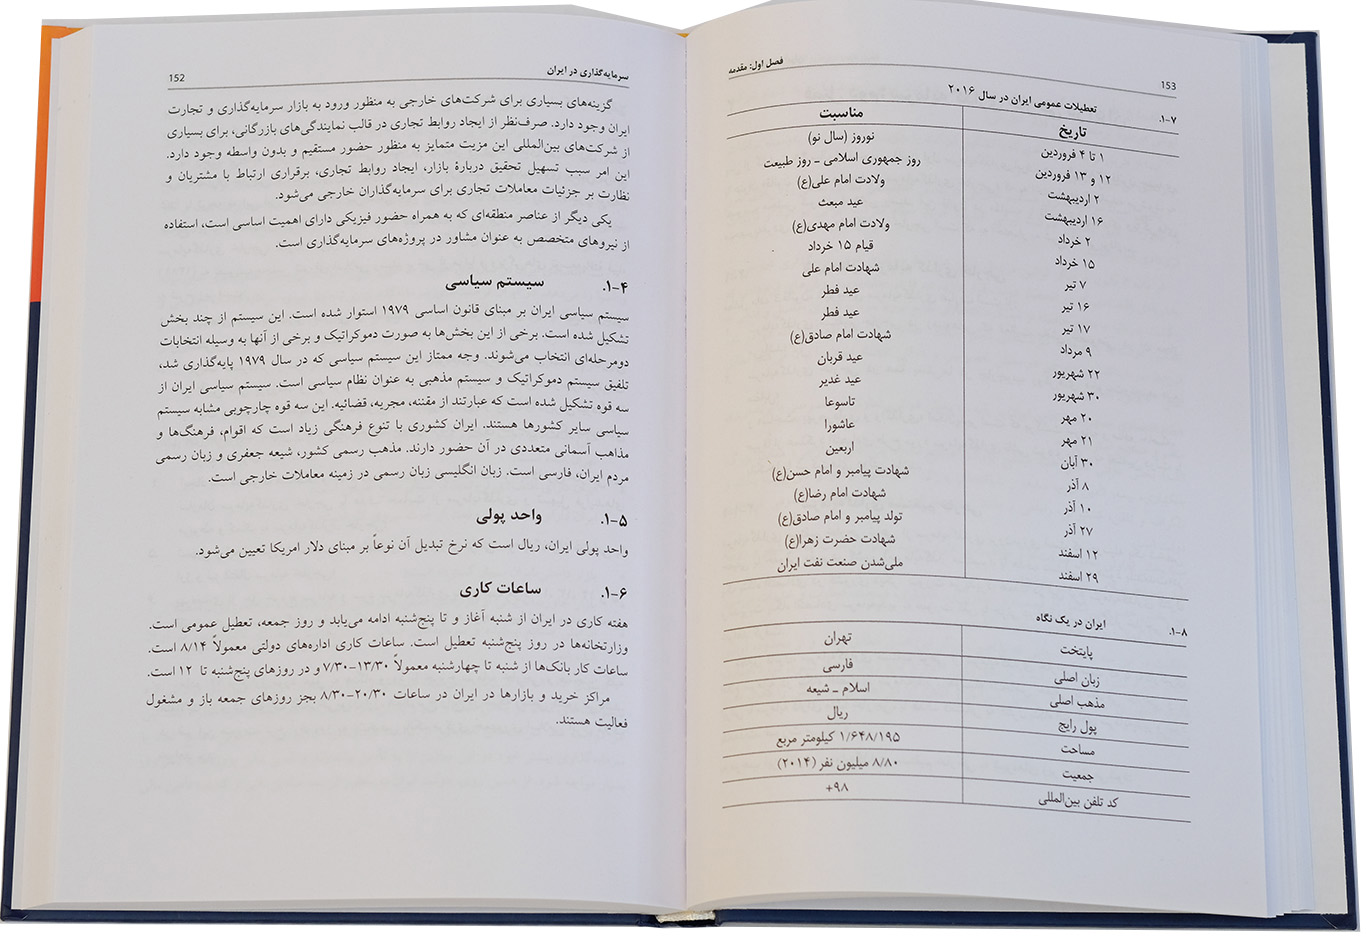 152
سرمایه‌گذاری در ایران
گزینه‌های بسیاری برای شرکت‌های خارجی به منظور ورود به بازار سرمایه‌گذاری و تجارت
ایران وجود دارد. صرف‌نظر از ایجاد روابط تجاری در قالب نمایندگی‌های بازرگانی، برای بسیاری
از شرکت‌های بین‌المللی این مزیت متمایز به منظور حضور مستقیم و بدون واسطه وجود دارد.
این امر سبب تسهیل تحقیق دربارهٔ بازار، ایجاد روابط تجاری، برقراری ارتباط با مشتریان و
نظارت بر جزئیات معاملات تجاری برای سرمایه‌گذاران خارجی می‌شود.
یکی دیگر از عناصر منطقه‌ای که به همراه حضور فیزیکی دارای اهمیت اساسی است، استفاده
از نیروهای متخصص به عنوان مشاور در پروژه‌های سرمایه‌گذاری است.
۱-۴. سیستم سیاسی
سیستم سیاسی ایران بر مبنای قانون اساسی ۱۹۷۹ استوار شده است. این سیستم از چند بخش
تشکیل شده است. برخی از این بخش‌ها به صورت دموکراتیک و برخی از آنها به وسیله انتخابات
دومرحله‌ای انتخاب می‌شوند. وجه ممتاز این سیستم سیاسی که در سال ۱۹۷۹ پایه‌گذاری شد،
تلفیق سیستم دموکراتیک و سیستم مذهبی به عنوان نظام سیاسی است. سیستم سیاسی ایران از
سه قوه تشکیل شده است که عبارتند از مقننه، مجریه، قضائیه. این سه قوه چارچوبی مشابه سیستم
سیاسی سایر کشورها هستند. ایران کشوری با تنوع فرهنگی زیاد است که اقوام، فرهنگ‌ها و
مذاهب آسمانی متعددی در آن حضور دارند. مذهب رسمی کشور، شیعه جعفری و زبان رسمی
مردم ایران، فارسی است. زبان انگلیسی زبان رسمی در زمینه معاملات خارجی است.
۱-۵. واحد پولی
واحد پولی ایران، ریال است که نرخ تبدیل آن نوعاً بر مبنای دلار امریکا تعیین می‌شود.
۱-۶. ساعات کاری
هفته کاری در ایران از شنبه آغاز و تا پنج‌شنبه ادامه می‌یابد و روز جمعه، تعطیل عمومی است.
وزارتخانه‌ها در روز پنج‌شنبه تعطیل است. ساعات کاری اداره‌های دولتی معمولاً ۸/۱۴ است.
ساعات کار بانک‌ها از شنبه تا چهارشنبه معمولاً ۷/۳۰-۱۳/۳۰ و در روزهای پنج‌شنبه تا ۱۲ است.
مراکز خرید و بازارها در ایران در ساعات ۸/۳۰-۲۰/۳۰ بجز روزهای جمعه باز و مشغول
فعالیت هستند.
فصل اول: مقدمه
153
۱-۷. تعطیلات عمومی ایران در سال ۲۰۱۶
تاریخ مناسبت
۱ تا ۴ فروردین نوروز (سال نو)
۱۲ و ۱۳ فروردین روز جمهوری اسلامی ـ روز طبیعت
۲ اردیبهشت ولادت امام علی(ع)
۱۶ اردیبهشت عید مبعث
۲ خرداد ولادت امام مهدی(ع)
۱۵ خرداد قیام ۱۵ خرداد
۷ تیر شهادت امام علی
۱۶ تیر عید فطر
۱۷ تیر عید فطر
۹ مرداد شهادت امام صادق(ع)
۲۲ شهریور عید قربان
۳۰ شهریور عید غدیر
۲۰ مهر تاسوعا
۲۱ مهر عاشورا
۳۰ آبان اربعین
۸ آذر شهادت پیامبر و امام حسن(ع)
۱۰ آذر شهادت امام رضا(ع)
۲۷ آذر تولد پیامبر و امام صادق(ع)
۱۲ اسفند شهادت حضرت زهرا(ع)
۲۹ اسفند ملی‌شدن صنعت نفت ایران
۱-۸. ایران در یک نگاه
پایتخت تهران
زبان اصلی فارسی
مذهب اصلی اسلام ـ شیعه
پول رایج ریال
مساحت ۱/۶۴۸/۱۹۵ کیلومتر مربع
جمعیت ۸/۸۰ میلیون نفر (۲۰۱۴)
کد تلفن بین‌المللی +۹۸